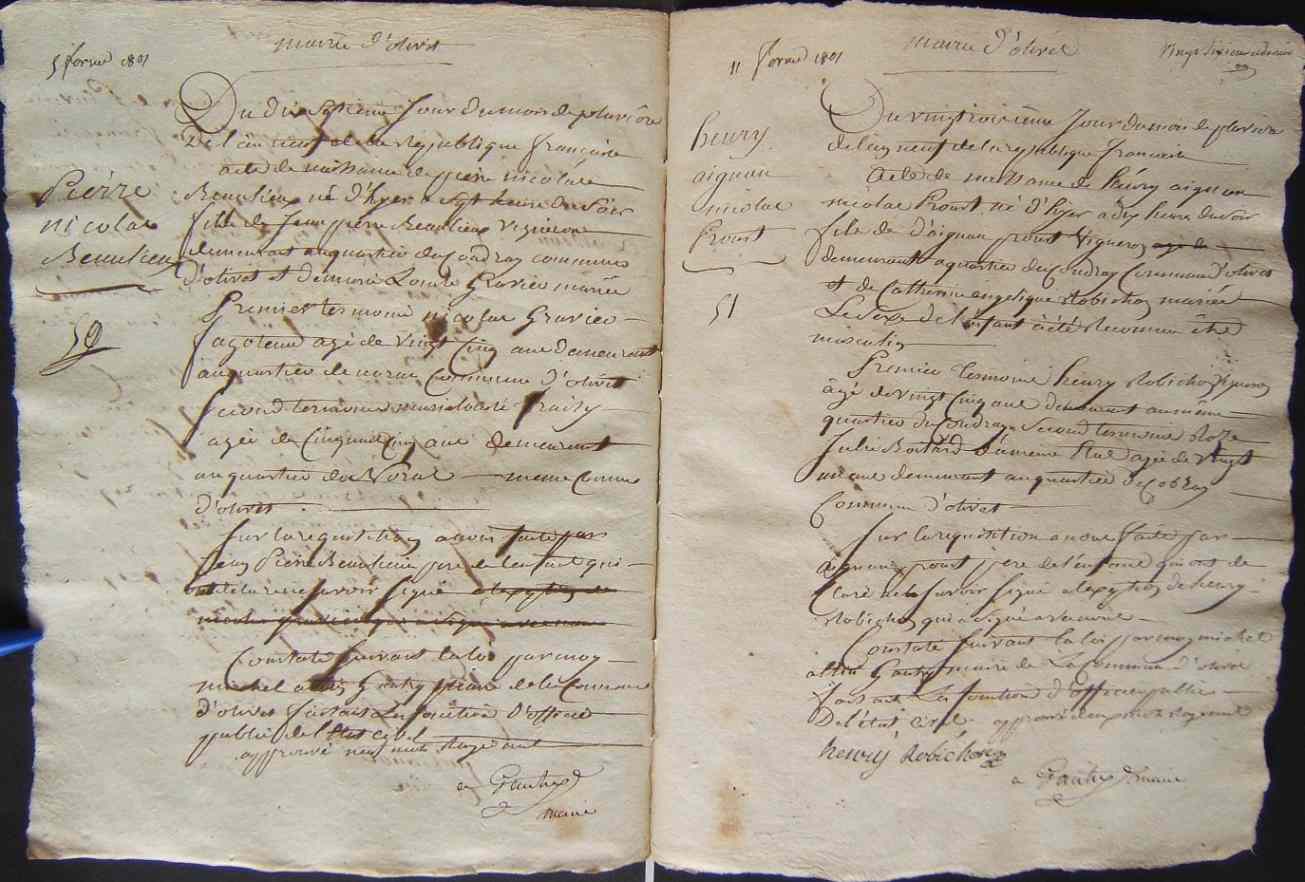 mairie d'olivet
5 fevrier 1801
Du dix septieme Jour du mois de pluviôse
De l'an neuf de la republique francaise
acte de naissance de pierre nicolas
Pierre
nicolas
Beaulieu
Beaulieu né d'hyer a sept heure du soir
fils de Jean pierre Beaulieu vigneron
demeurant au quartier du Coudray commune
d'olivet et de marie Louise Gravier mariée
50
Premier temoins nicolas Gravier
agé de vingt Cinq ans demeurant
au quartier de Commune d'olivet
second temoins
agée de Cinquante Cinq ans demeurant
au quartier de meme Commune
d'olivet
sur la requisition a nous faite par
Jean Pierre Beaulieu pere de l'enfant qui
a declaré ne savoir signé
Constaté suivant la loi par moy
michel Gautry maire de la Commune
d'olivet faisant les fonction d'officier
public de l'Etat civil
approuvé neuf mots rayé nul
Gautry
maire
mairie d'olivet
11 fevrier 1801
Du vingt troisième Jour du mois de pluviose
de l'an neuf de la republique francaise
henry
aignan
nicolas
Proust
acte de naissance de henry aignan
nicolas Proust né d'hyer a dix heure du soir
fils de D'aignan proust vigneron
demeurant au quartier du Coudray Commune d'olivet
et de Catherine angelique Robichon mariée
51
Le sexe de l'enfant a été Reconnu être
masculin
Premier temoins henry Robichon vigneron
âgé de vingt Cinq ans demeurant au même
quartier du Coudray second temoins Rose
Julie Boitard agée de vingt
un ans demeurant au quartier du
Commune d'olivet
sur la requisition a nous faite par
aignan proust pere de l'enfant qui ont de
Claré ne savoir signé a l'exeption de henry
Robichon qui a signé avec nous
Constaté suivant la loi par moy michel
Gautry maire de La Commune d'olivet
faisant les fonction d'officier public
De l'état civil approuvé deux mots rayé nul
henry Robichon
Gautry maire